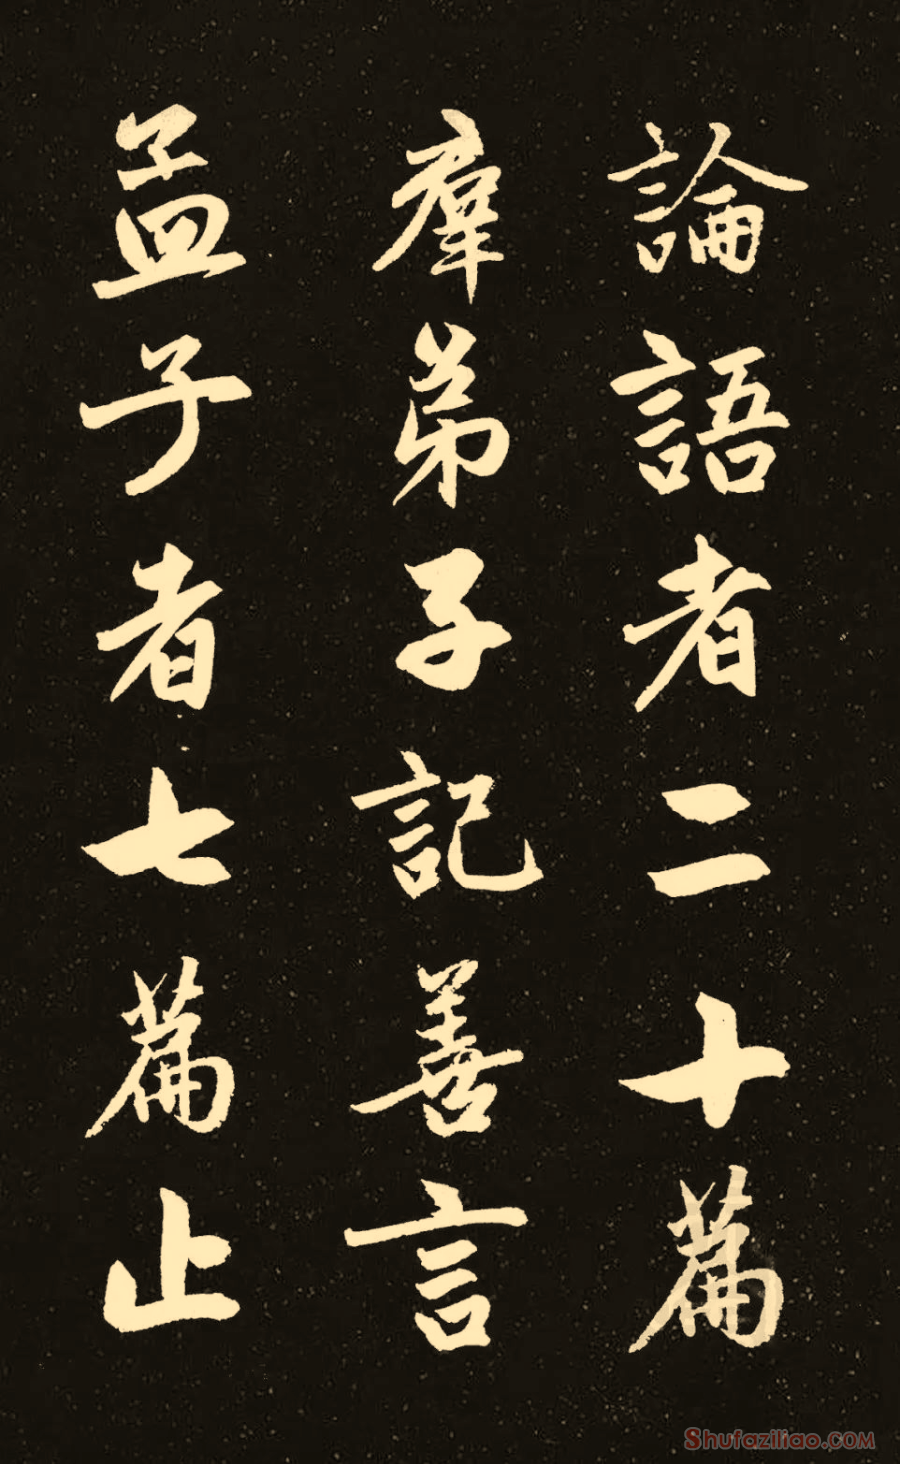 論語者二十篇
羣弟子記善言
孟子者七篇止
Shufaziliao.com